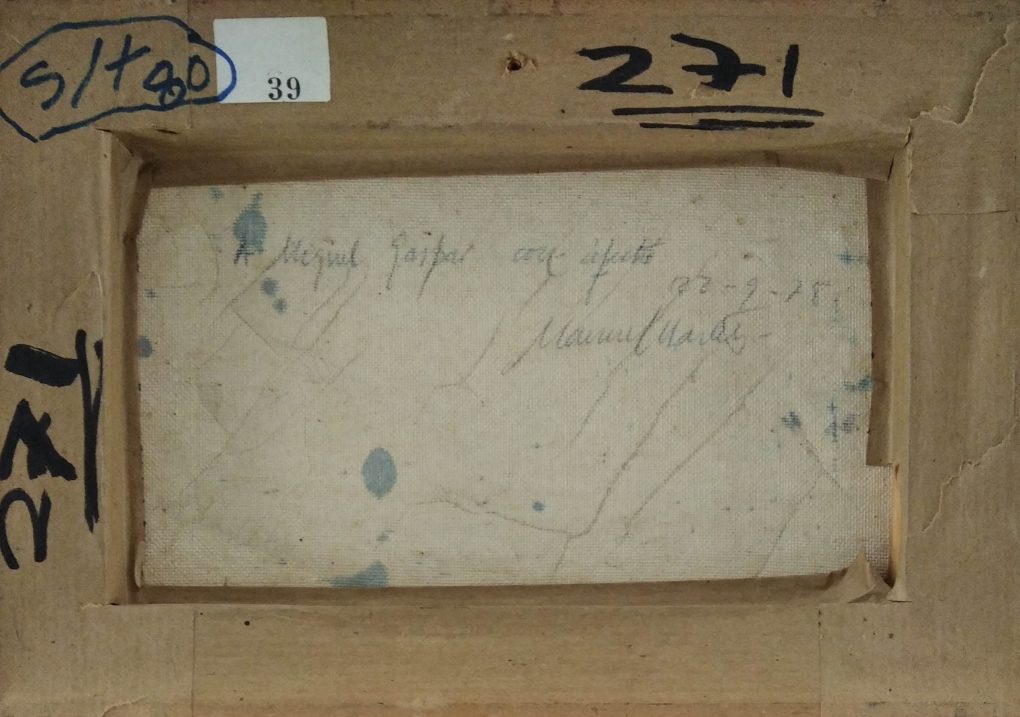 S/T 80
39
271
A Miguel Gaspar con afecto
22-9-78
Manuel
271